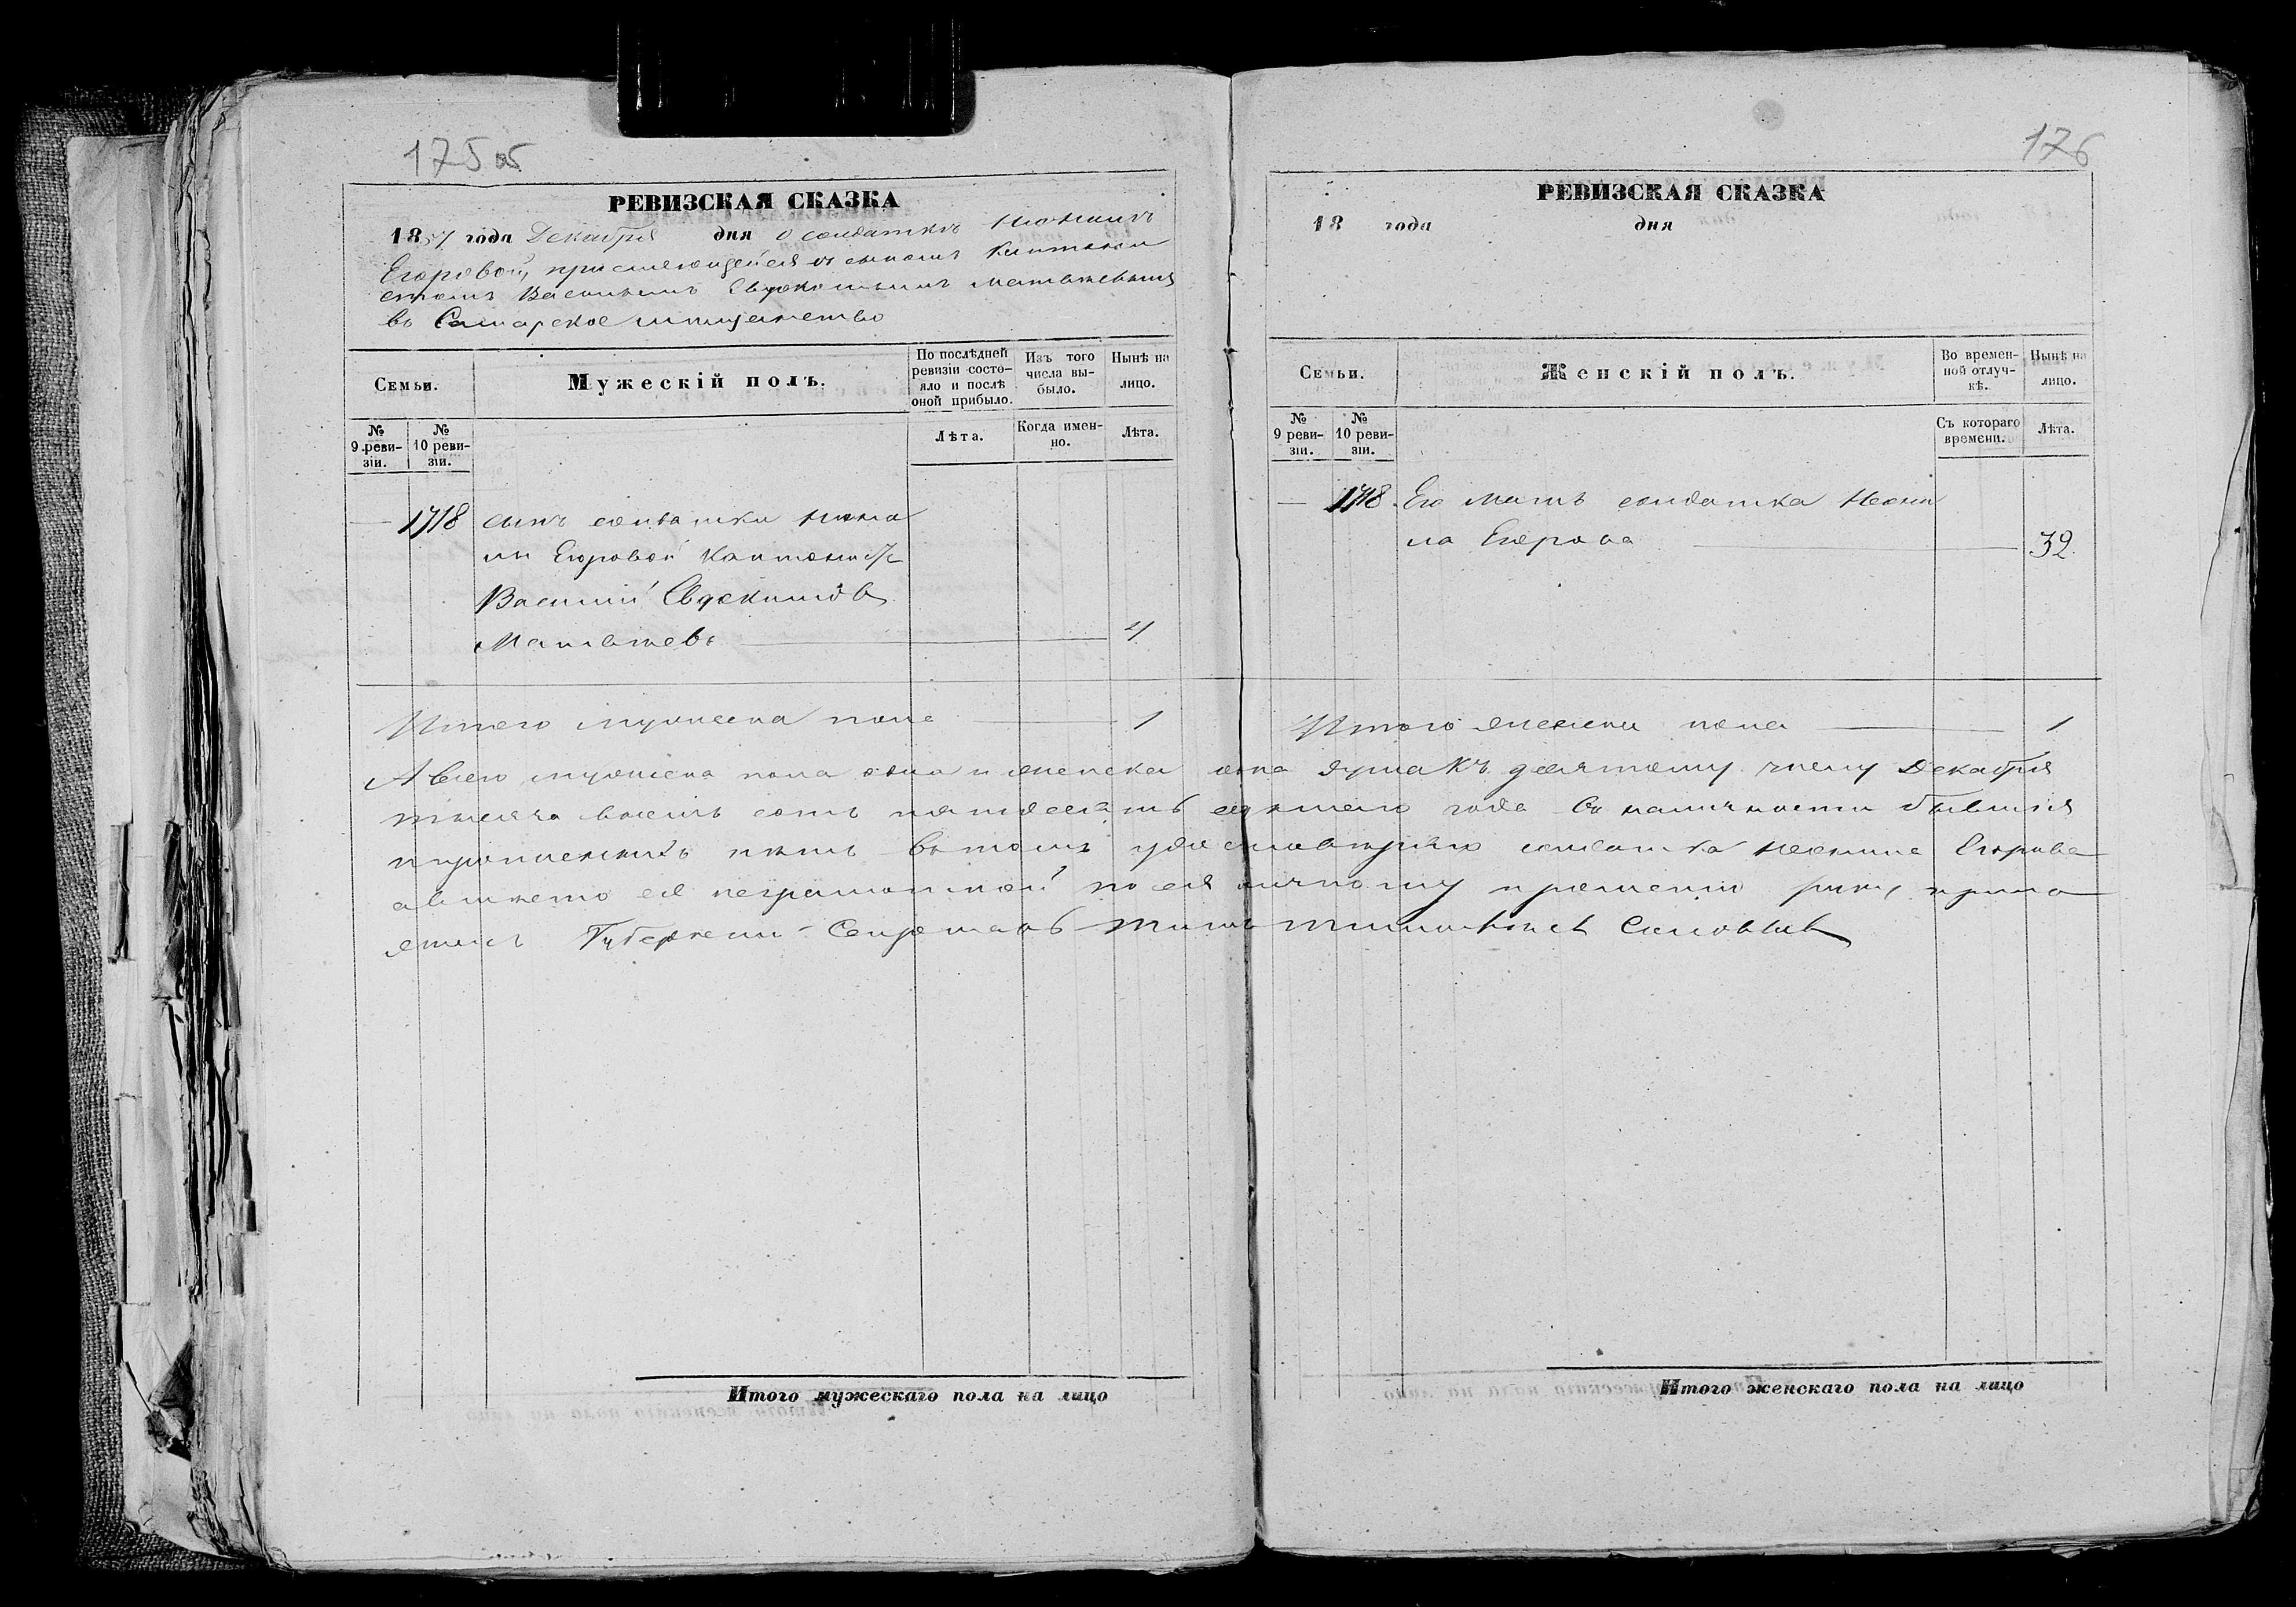 175 об
РЕВИЗСКАЯ СКАЗКА
1857 года Декабря дня о солдаткѣ Неонилѣ
Егоровой, причисляющейся съ сыномъ Кантони
стомъ Васильемъ Евдокимымъ Матвѣевымъ
въ Самарское мѣщанство
Семьи.
Мужескій полъ.
По послѣдней ревизіи состо-
яло и послѣ
оной прибыло.
Изъ того
числа вы-
было.
Нынѣ на
лицо.
№
9 реви-
зіи.
№
10 реви-
зіи.
Лѣта.
Когда имен-
но.
Лѣта.
— 1718 сынъ солдатки Неони
лы Егоровой Кантонистъ
Василій Евдокимовъ
Матвѣевъ 4
Итого мужеска пола 1
176
РЕВИЗСКАЯ СКАЗКА
18 года дня
Семьи.
Женскій полъ.
Во времен-
ной отлуч-
кѣ.
Нынѣ на
лицо.
№
9 реви-
зіи.
№
10 реви-
зіи.
Съ котораго
времени.
Лѣта.
— 1718 Его мать солдатка Неони
ла Егорова 32
Итого женска пола 1
А всего мужеска пола одна и женска одна душа къ десятому числу Декабря
тысяча восемь сотъ пятдесятъ седьмого года въ наличности бывшія
пропущенныхъ нѣтъ въ томъ удостовѣряю солдатка Неонила Егорова
а вмѣсто её неграмотной по её личному прошенію руку прило
жилъ Губернскій Секретарь
Итого мужескаго пола на лицо
Итого женскаго пола на лицо